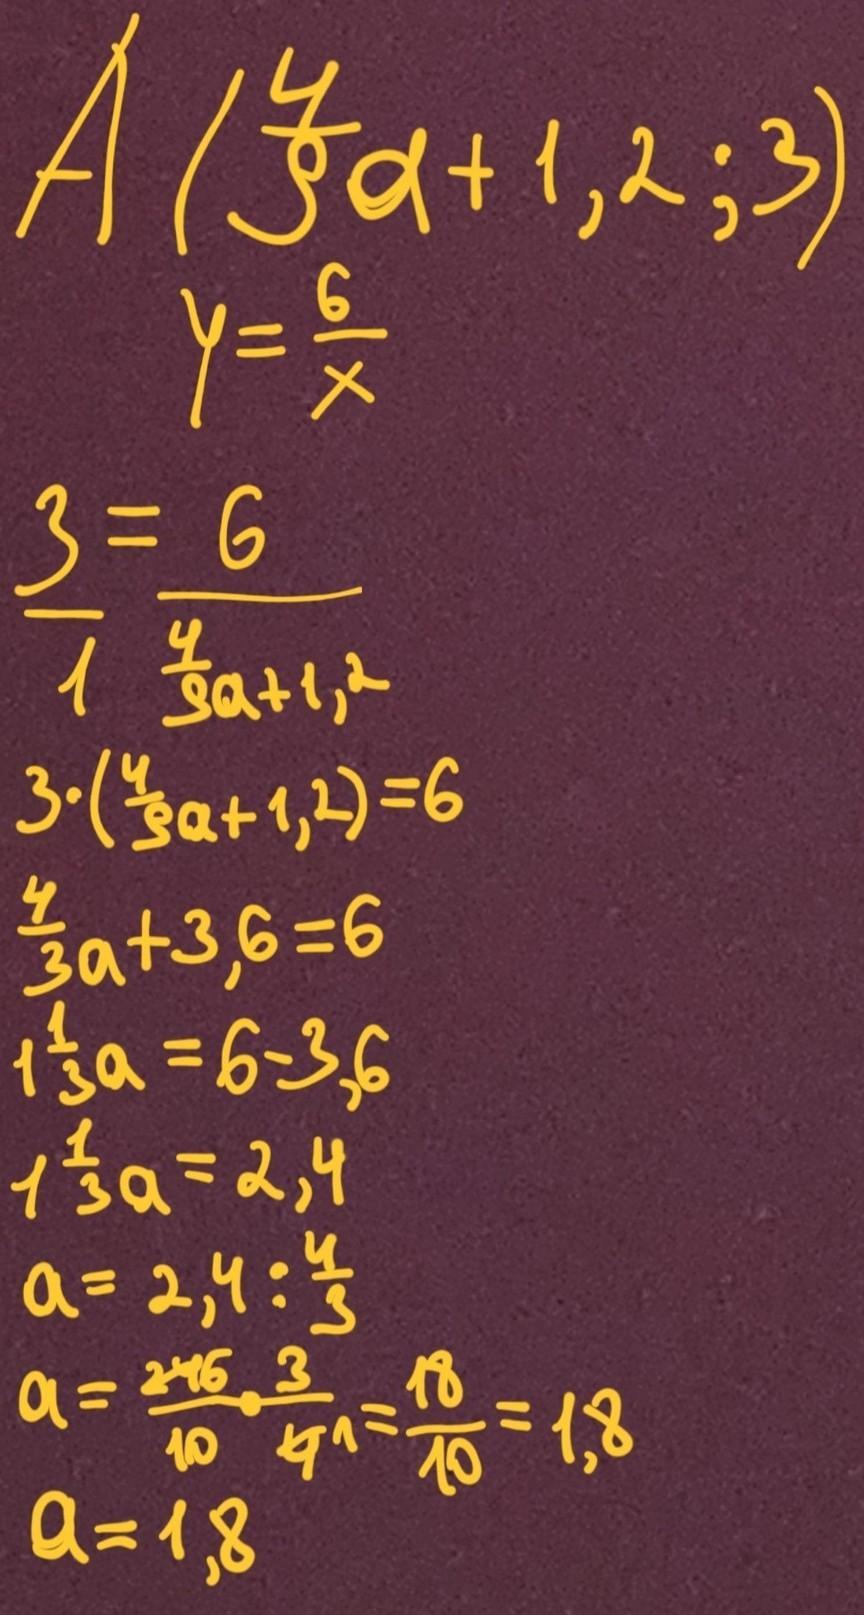 A(4/9a+1,2;3)
y=6/x
3/1=6/(4/9a+1,2)
3·(4/9a+1,2)=6
4/3a+3,6=6
1 1/3a=6-3,6
1 1/3a=2,4
a=2,4:4/3
a=24 6/10·3/4 1=18/10=1,8
a=1,8